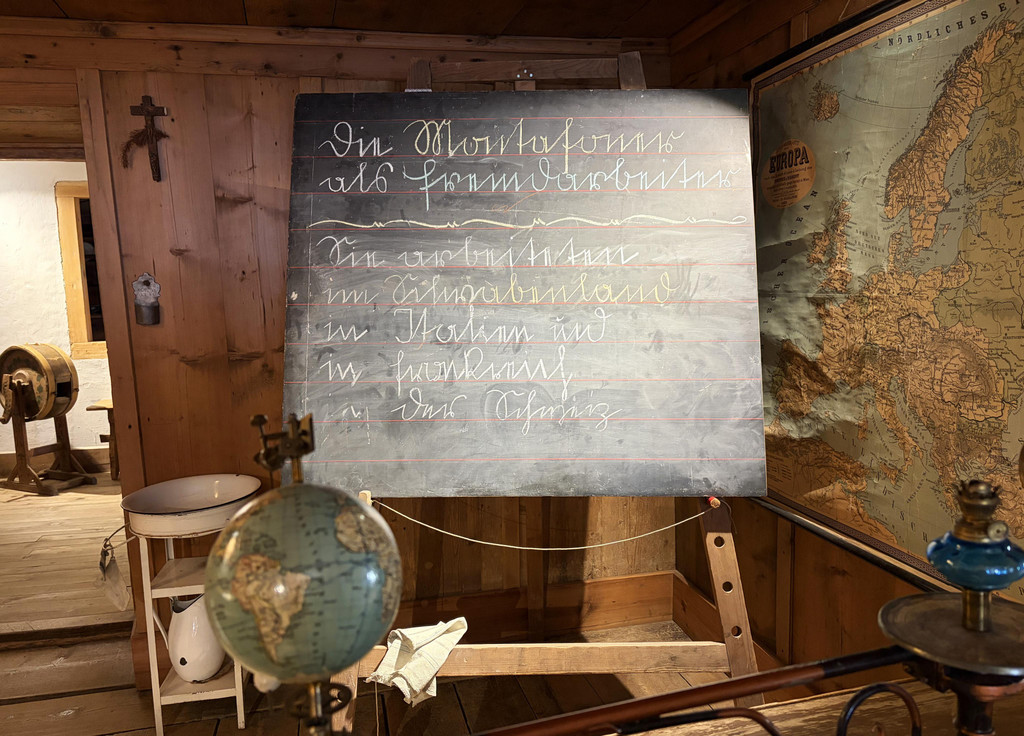 Die Montafoner
als Fremdarbeiter
Sie arbeiteten
im Schwabenland
in Italien und
in Frankreich
in der Schweiz
NÖRDLICHES EI
EUROPA